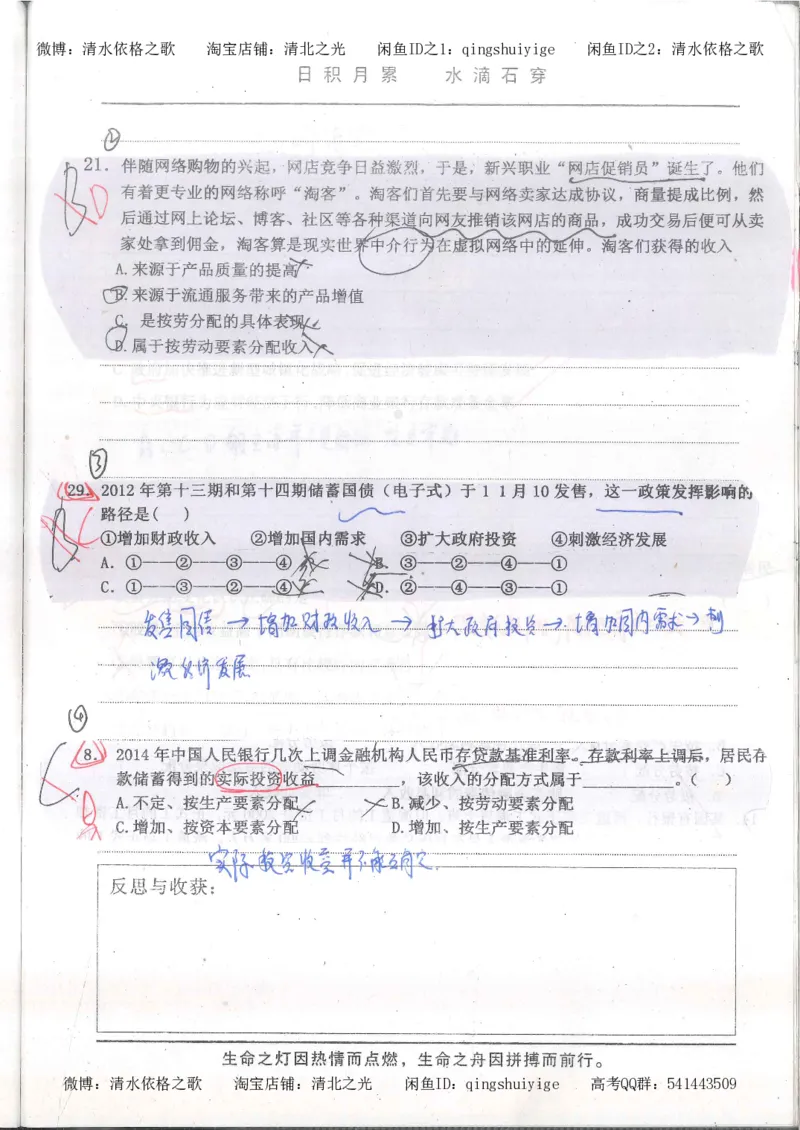 微博：清水依格之歌 淘宝店铺：清北之光 闲鱼ID之1：qingshuiyige 闲鱼ID之2：清水依格之歌
日积月累 水滴石穿
②
21．伴随网络购物的兴起，网店竞争日益激烈，于是，新兴职业“网店促销员”诞生了。他们
有着更专业的网络称呼“淘客”。淘客们首先要与网络卖家达成协议，商量提成比例，然
后通过网上论坛、博客、社区等各种渠道向网友推销该网店的商品，成功交易后便可从卖
家处拿到佣金，淘客算是现实世界中介行为在虚拟网络中的延伸。淘客们获得的收入
A.来源于产品质量的提高
B.来源于流通服务带来的产品增值
C．是按劳分配的具体表现
D.属于按劳动要素分配收入
③
29．2012年第十三期和第十四期储蓄国债（电子式）于１１月10发售，这一政策发挥影响的
路径是( )
①增加财政收入 ②增加国内需求 ③扩大政府投资 ④刺激经济发展
A．①——②——③——④ B．③——②——④——①
C．①——③——②——④ D．②——④——③——①
发售国债 → 增加财政收入 → 扩大政府投资 → 增加国内需求 → 刺
激经济发展
④
8． 2014年中国人民银行几次上调金融机构人民币存贷款基准利率。存款利率上调后，居民存
款储蓄得到的实际投资收益________，该收入的分配方式属于________。( )
A.不定、按生产要素分配 B.减少、按劳动要素分配
C.增加、按资本要素分配 D.增加、按生产要素分配
实际投资收益并不能确定.
反思与收获：
生命之灯因热情而点燃，生命之舟因拼搏而前行。
微博：清水依格之歌 淘宝店铺：清北之光 闲鱼ID：qingshuiyige 高考QQ群：541443509